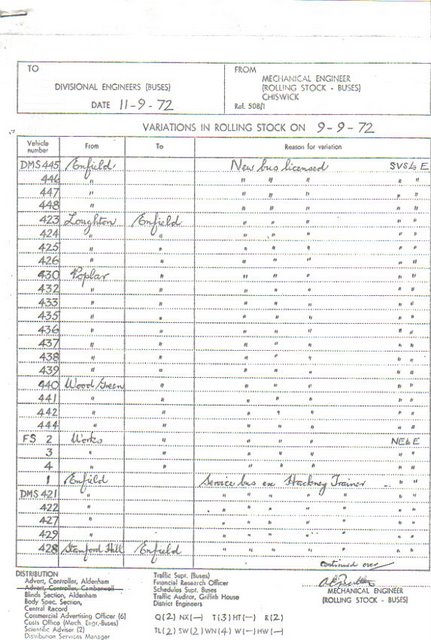 TO
DIVISIONAL ENGINEERS (BUSES)
DATE 11-9-72
FROM
MECHANICAL ENGINEER
(ROLLING STOCK - BUSES)
CHISWICK
Ref. 508/1
VARIATIONS IN ROLLING STOCK ON 9-9-72
Vehicle number From To Reason for variation
DMS 445 Enfield New bus licensed SVS to E
446 " " " " " "
447 " " " " " "
448 " " " " " "
423 Loughton Enfield " " " " "
424 " " " " " " "
425 " " " " " " "
426 " " " " " " "
430 Poplar " " " " " "
432 " " " " " " "
433 " " " " " " "
435 " " " " " " "
436 " " " " " " "
437 " " " " " " "
438 " " " " " " "
439 " " " " " " "
440 Wood Green " " " " " "
441 " " " " " " "
442 " " " " " " "
444 " " " " " " "
FS 2 Works " " " " NE to E
3 " " " " " " "
4 " " " " " " "
1 Enfield Service bus ex Hackney Trainer " "
DMS 421 " " " " " " " "
422 " " " " " " " "
427 " " " " " " " "
429 " " " " " " " "
428 Stamford Hill Enfield " " " " " " "
Continued over
DISTRIBUTION
Advert, Controller, Aldenham
Advert, Controller, Camberwell
Blinds Section, Aldenham
Body Spec. Section,
Central Record
Commercial Advertising Officer (6)
Costs Office (Mech. Engr.-Buses)
Scientific Adviser (2)
Distribution Services Manager
Traffic Supt. (Buses)
Financial Research Officer
Schedules Supt. Buses
Traffic Auditor, Griffith House
District Engineers
Q(2) NX(-) T(3) HT(-) R(2)
TL(2) SW(2) WN(4) W(-) HW(-)
MECHANICAL ENGINEER
(ROLLING STOCK - BUSES)